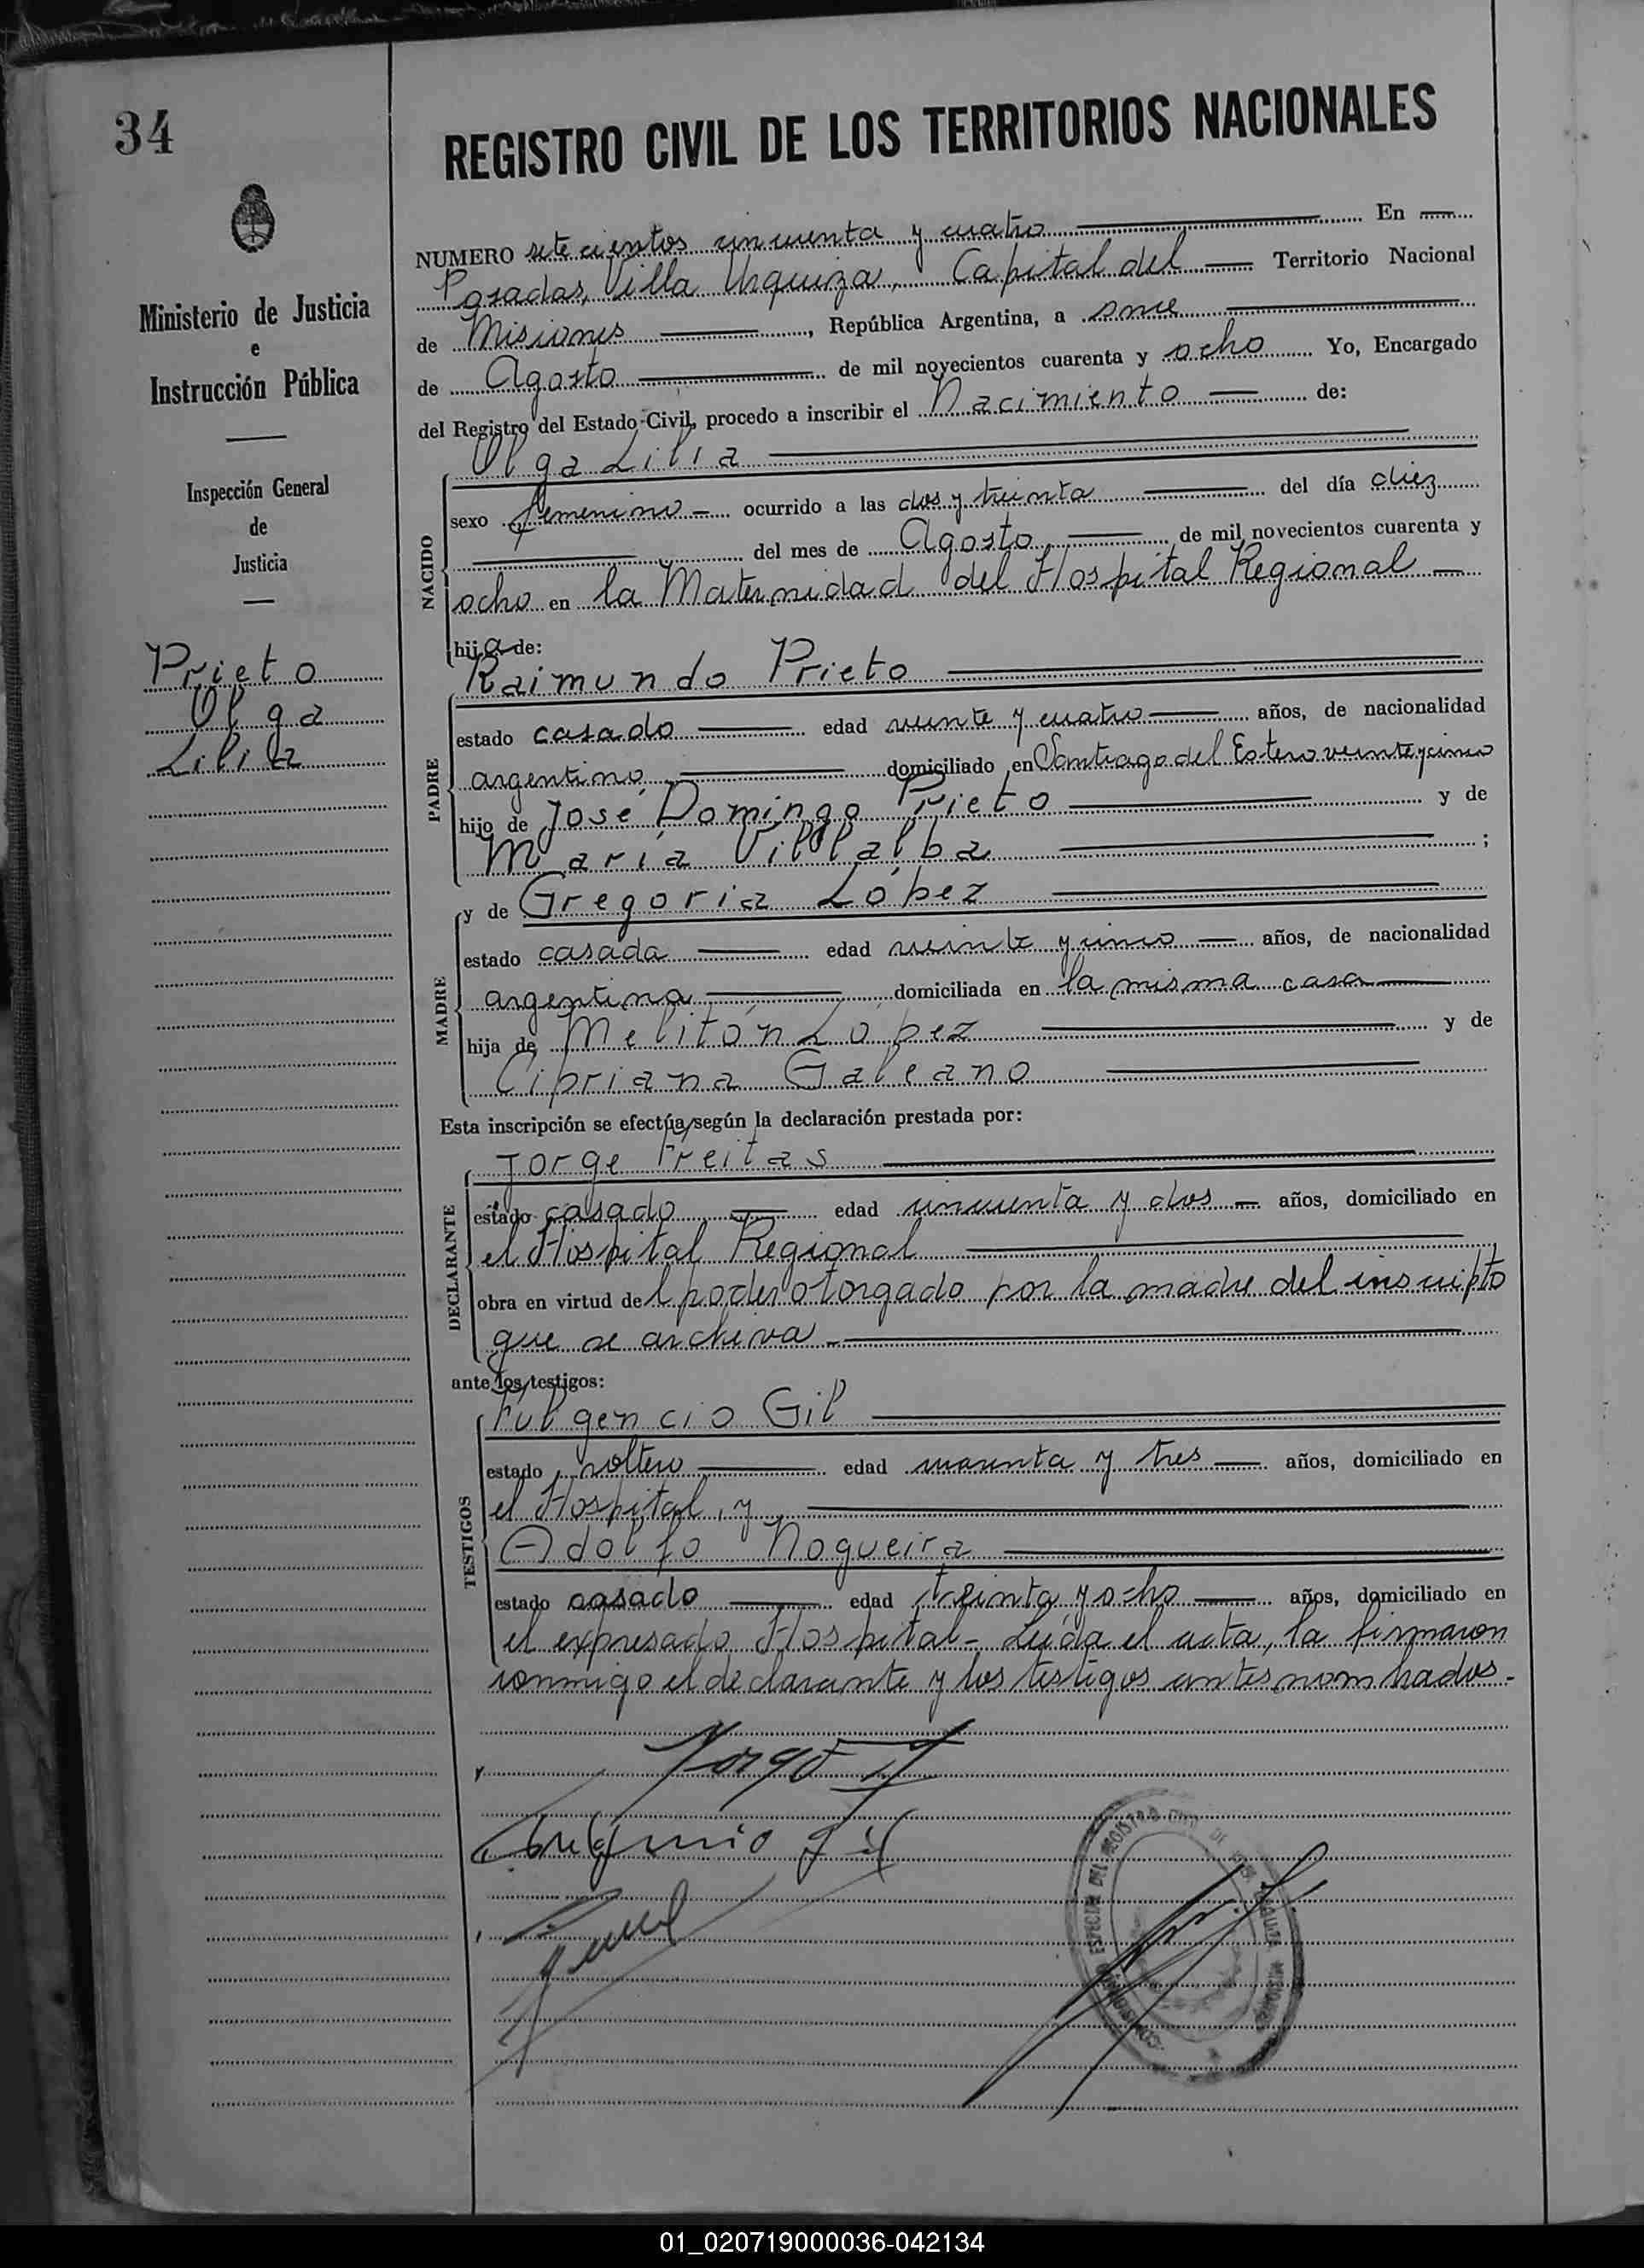 34
REGISTRO CIVIL DE LOS TERRITORIOS NACIONALES
Ministerio de Justicia
e
Instrucción Pública
Inspección General
de
Justicia
Prieto
Olga
Lilia
NUMERO setecientos cincuenta y cuatro En
Posadas, Villa Urquiza, Capital del Territorio Nacional
de Misiones, República Argentina, a once
de Agosto de mil novecientos cuarenta y ocho Yo, Encargado
del Registro del Estado Civil, procedo a inscribir el Nacimiento de:
Olga Lilia
NACIDO
sexo femenino - ocurrido a las dos y treinta del día diez
del mes de Agosto de mil novecientos cuarenta y
ocho en la Maternidad del Hospital Regional
hija de:
Raimundo Prieto
PADRE
estado casado edad veinte y cuatro años, de nacionalidad
argentino domiciliado en Santiago del Estero veinte y cinco
hijo de José Domingo Prieto y de
María Villalba ;
y de Gregoria López
MADRE
estado casada edad veinte y cinco años, de nacionalidad
argentina domiciliada en la misma casa
hija de Melitón López y de
Cipriana Galeano
Esta inscripción se efectúa según la declaración prestada por:
Jorge Freitas
DECLARANTE
estado casado edad cincuenta y dos años, domiciliado en
el Hospital Regional
obra en virtud del poder otorgado por la madre del inscripto
que se archiva
ante los testigos:
Fulgencio Gil
TESTIGOS
estado soltero edad cuarenta y tres años, domiciliado en
el Hospital, y
Adolfo Nogueira
estado casado edad treinta y ocho años, domiciliado en
el expresado Hospital - Leída el acta, la firmaron
conmigo el declarante y los testigos antes nombrados.-
01_020719000036-042134